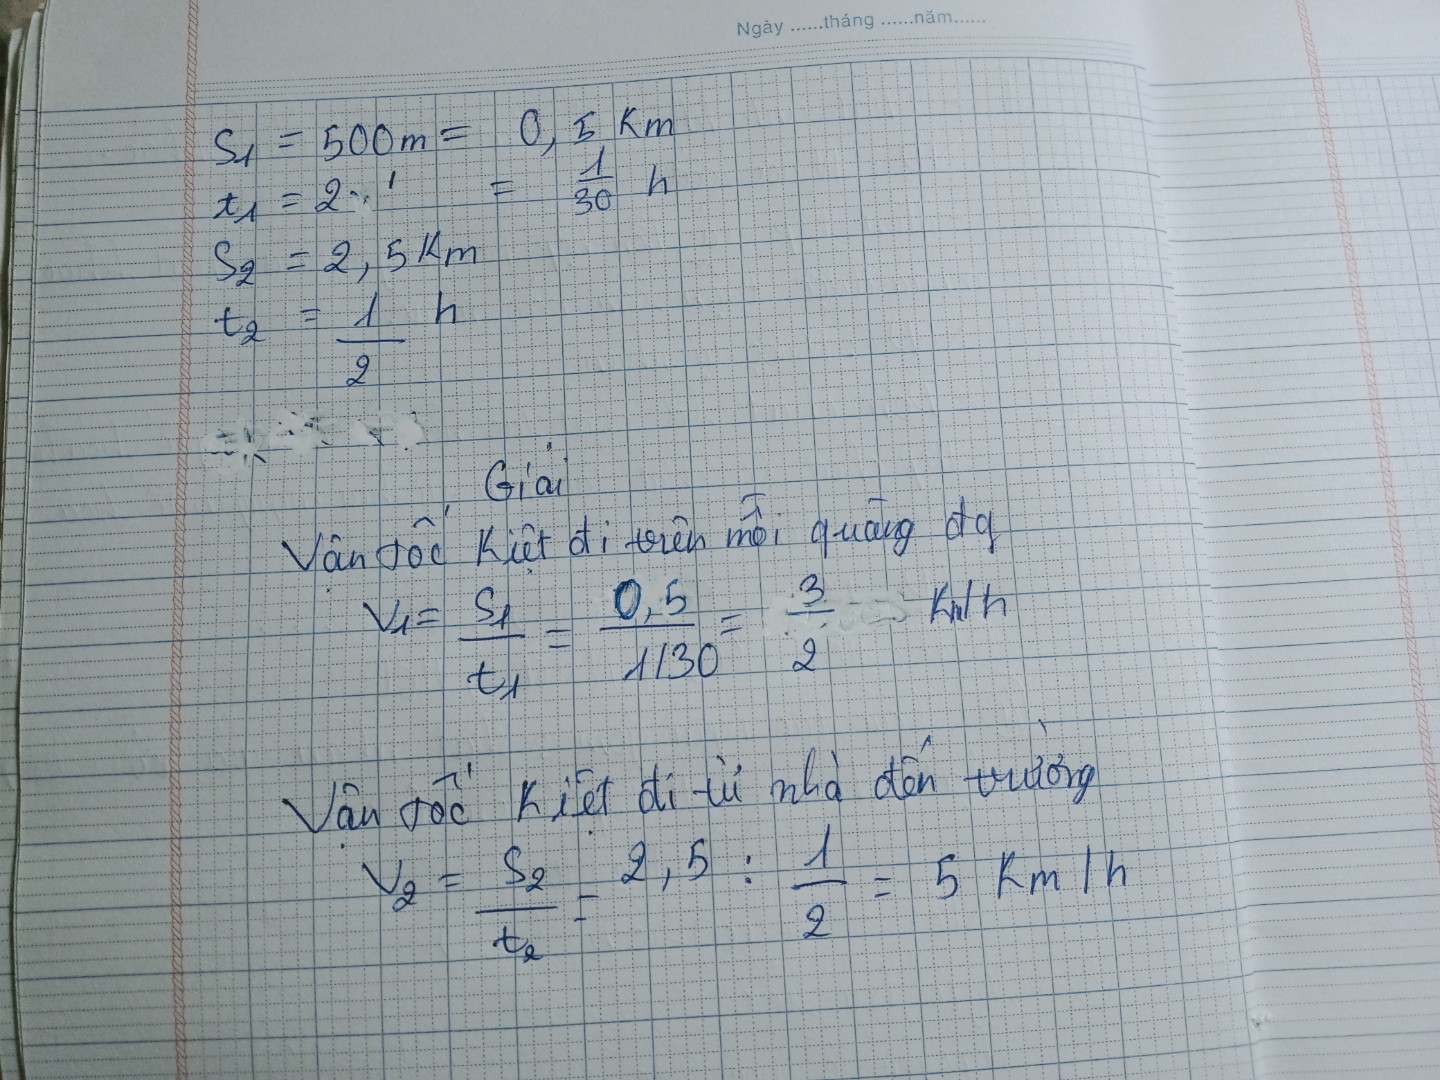 Ngày ......tháng ......năm......
S₁ = 500m = 0,5 Km
t₁ = 2' = 1/30 h
S₂ = 2,5 Km
t₂ = 1/2 h
Giải
Vận tốc Kiệt đi trên mỗi quãng đg
V₁ = S₁/t₁ = 0,5/1/30 = 3/2 Km/h
Vận tốc Kiệt đi từ nhà đến trường
V₂ = S₂/t₂ = 2,5 : 1/2 = 5 Km/h